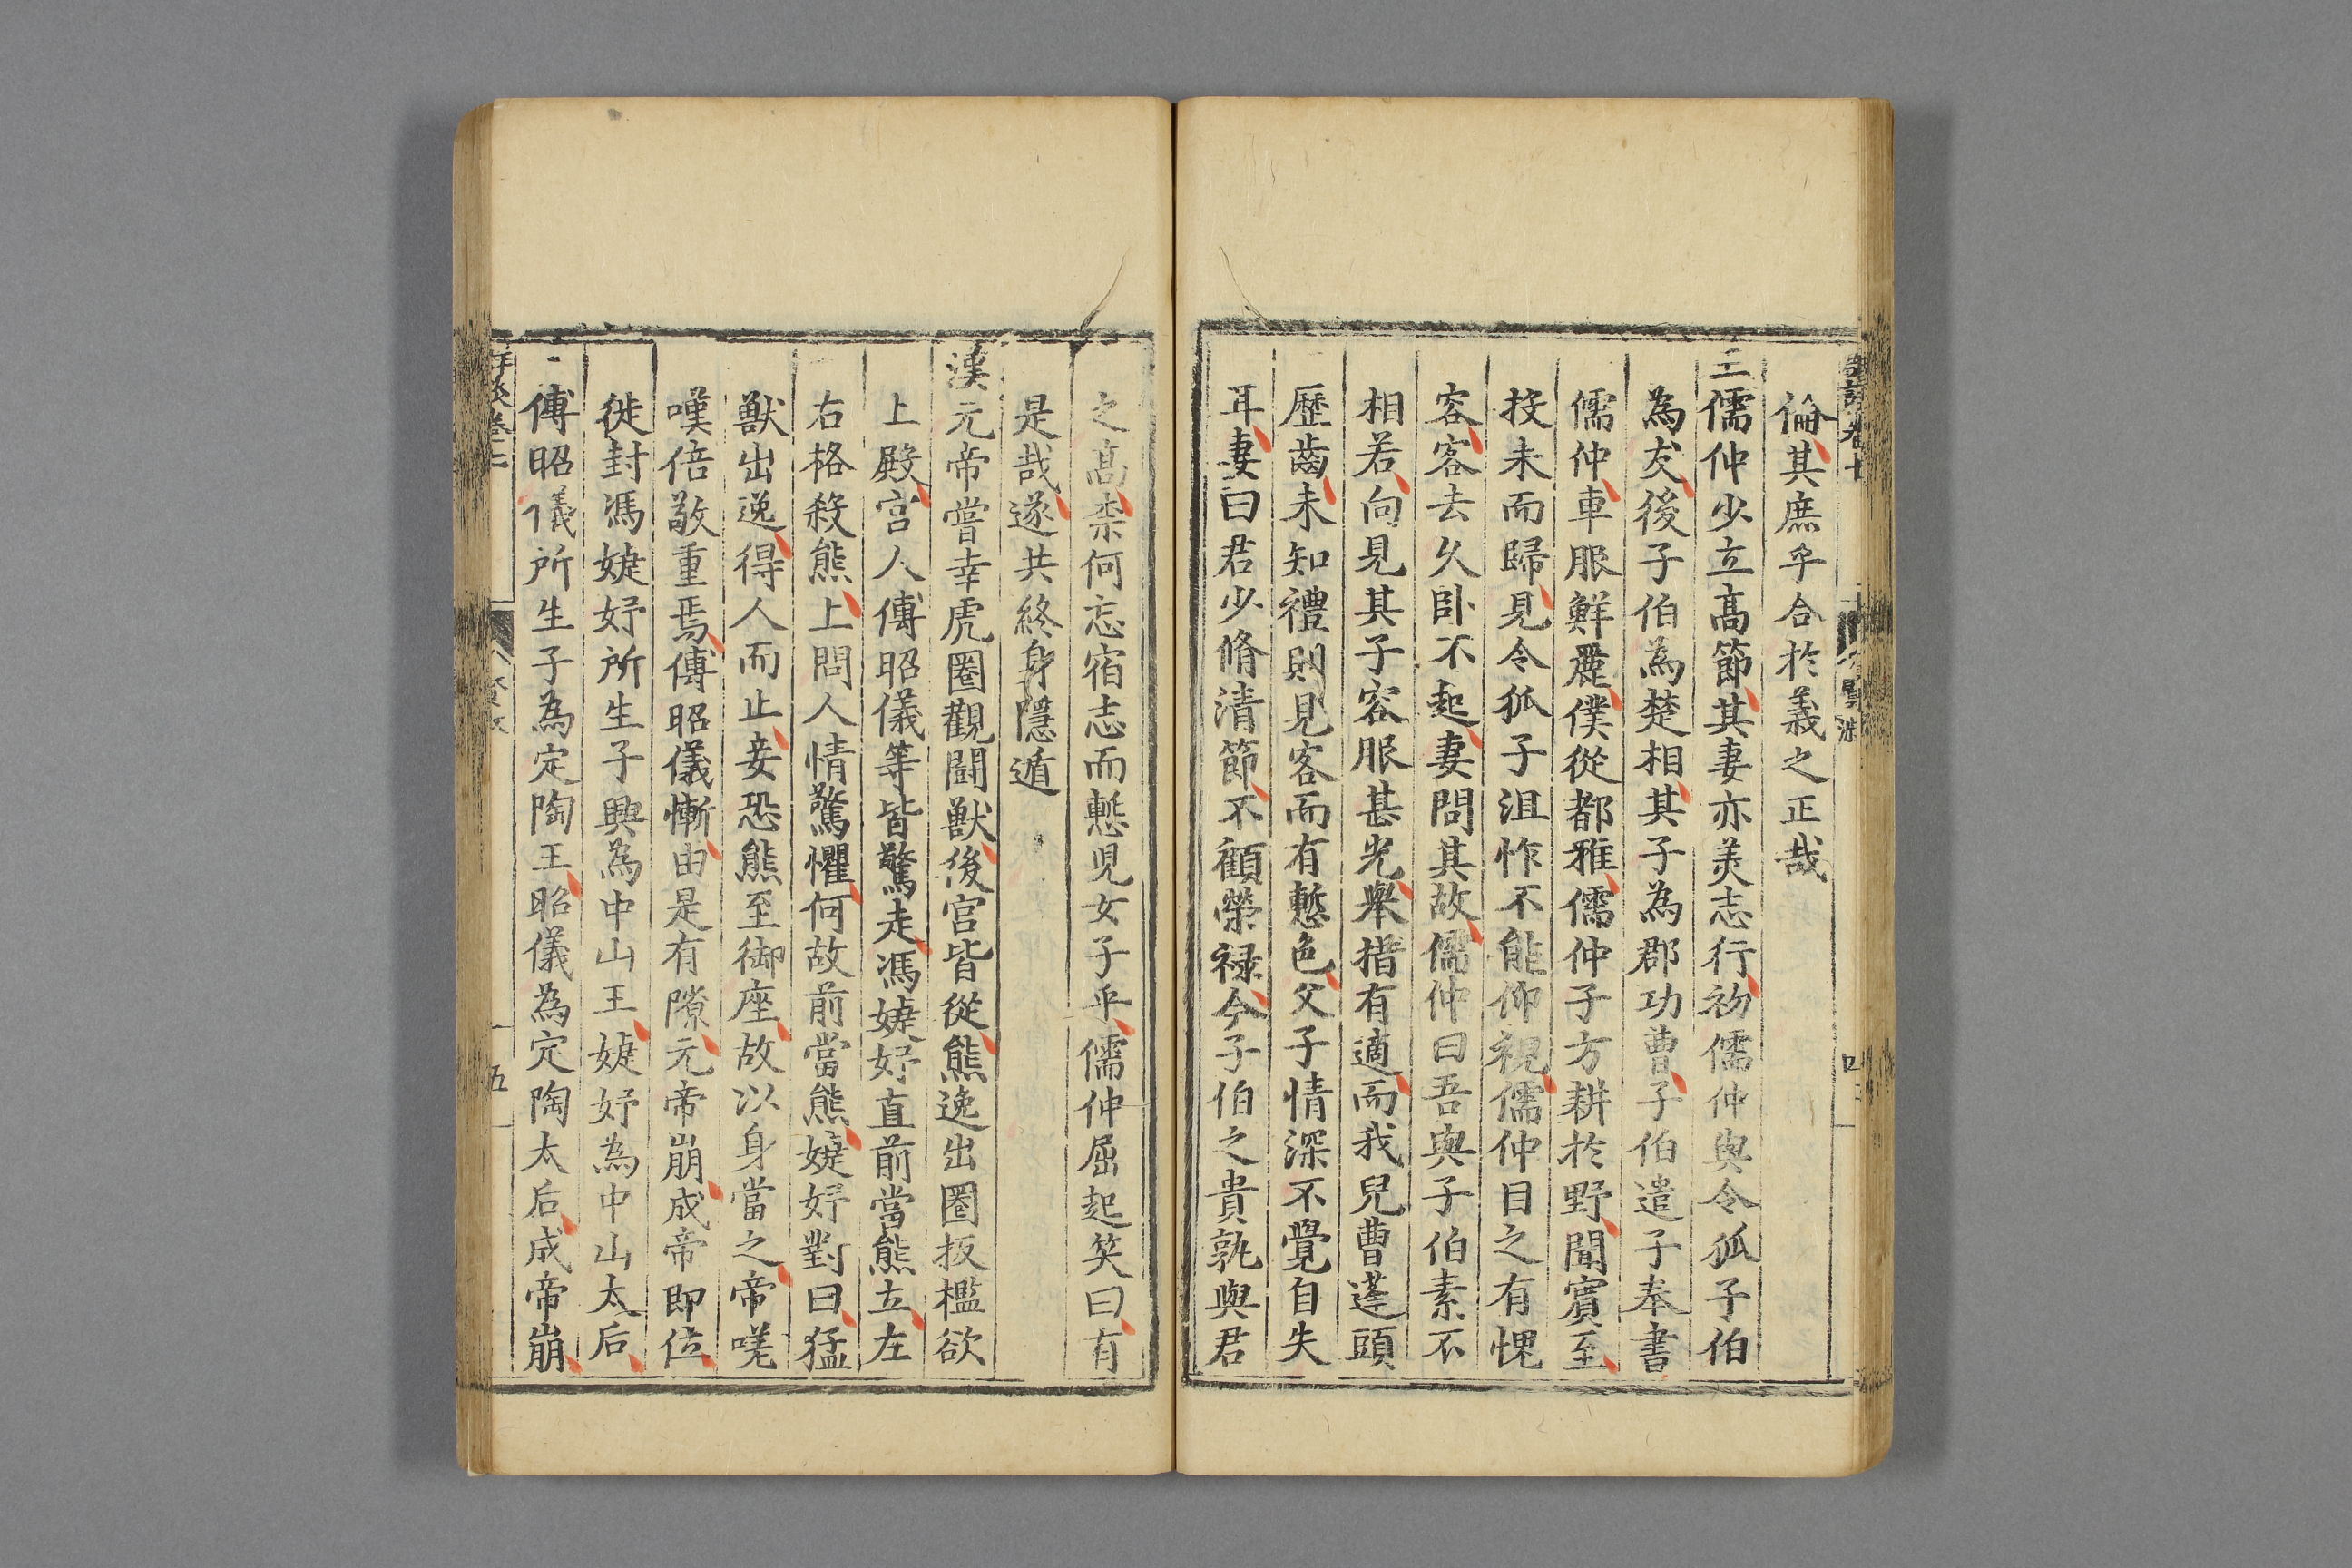 倫其庶乎合於義之正哉
王儒仲少立髙節其妻亦美志行初儒仲與令狐子伯
為友後子伯為楚相其子為郡功曹子伯遣子奉書
儒仲車服鮮麗僕從都雅儒仲子方耕於野聞賔至
投耒而歸見令狐子沮怍不能仰視儒仲目之有愧
容客去久卧不起妻問其故儒仲曰吾與子伯素不
相若向見其子容服甚光舉措有適而我兒曹蓬頭
歷齒未知禮則見客而有慙色父子情深不覺自失
耳妻曰君少脩清節不顧榮禄今子伯之貴孰與君
之髙柰何忘宿志而慙児女子乎儒仲屈起笑曰有
是哉遂共終身隱遁
漢元帝嘗幸虎圈觀鬪獸後宮皆從熊逸出圈扳檻欲
上殿宮人傅昭儀等皆驚走馮婕妤直前當熊立左
右格殺熊上問人情驚懼何故前當熊婕妤對曰猛
獸出逸得人而止妾恐熊至御座故以身當之帝嗟
嘆倍敬重焉傅昭儀慚由是有隙元帝崩成帝即位
徙封馮婕妤所生子興為中山王婕妤為中山太后
傅昭儀所生子為定陶王昭儀為定陶太后成帝崩
五